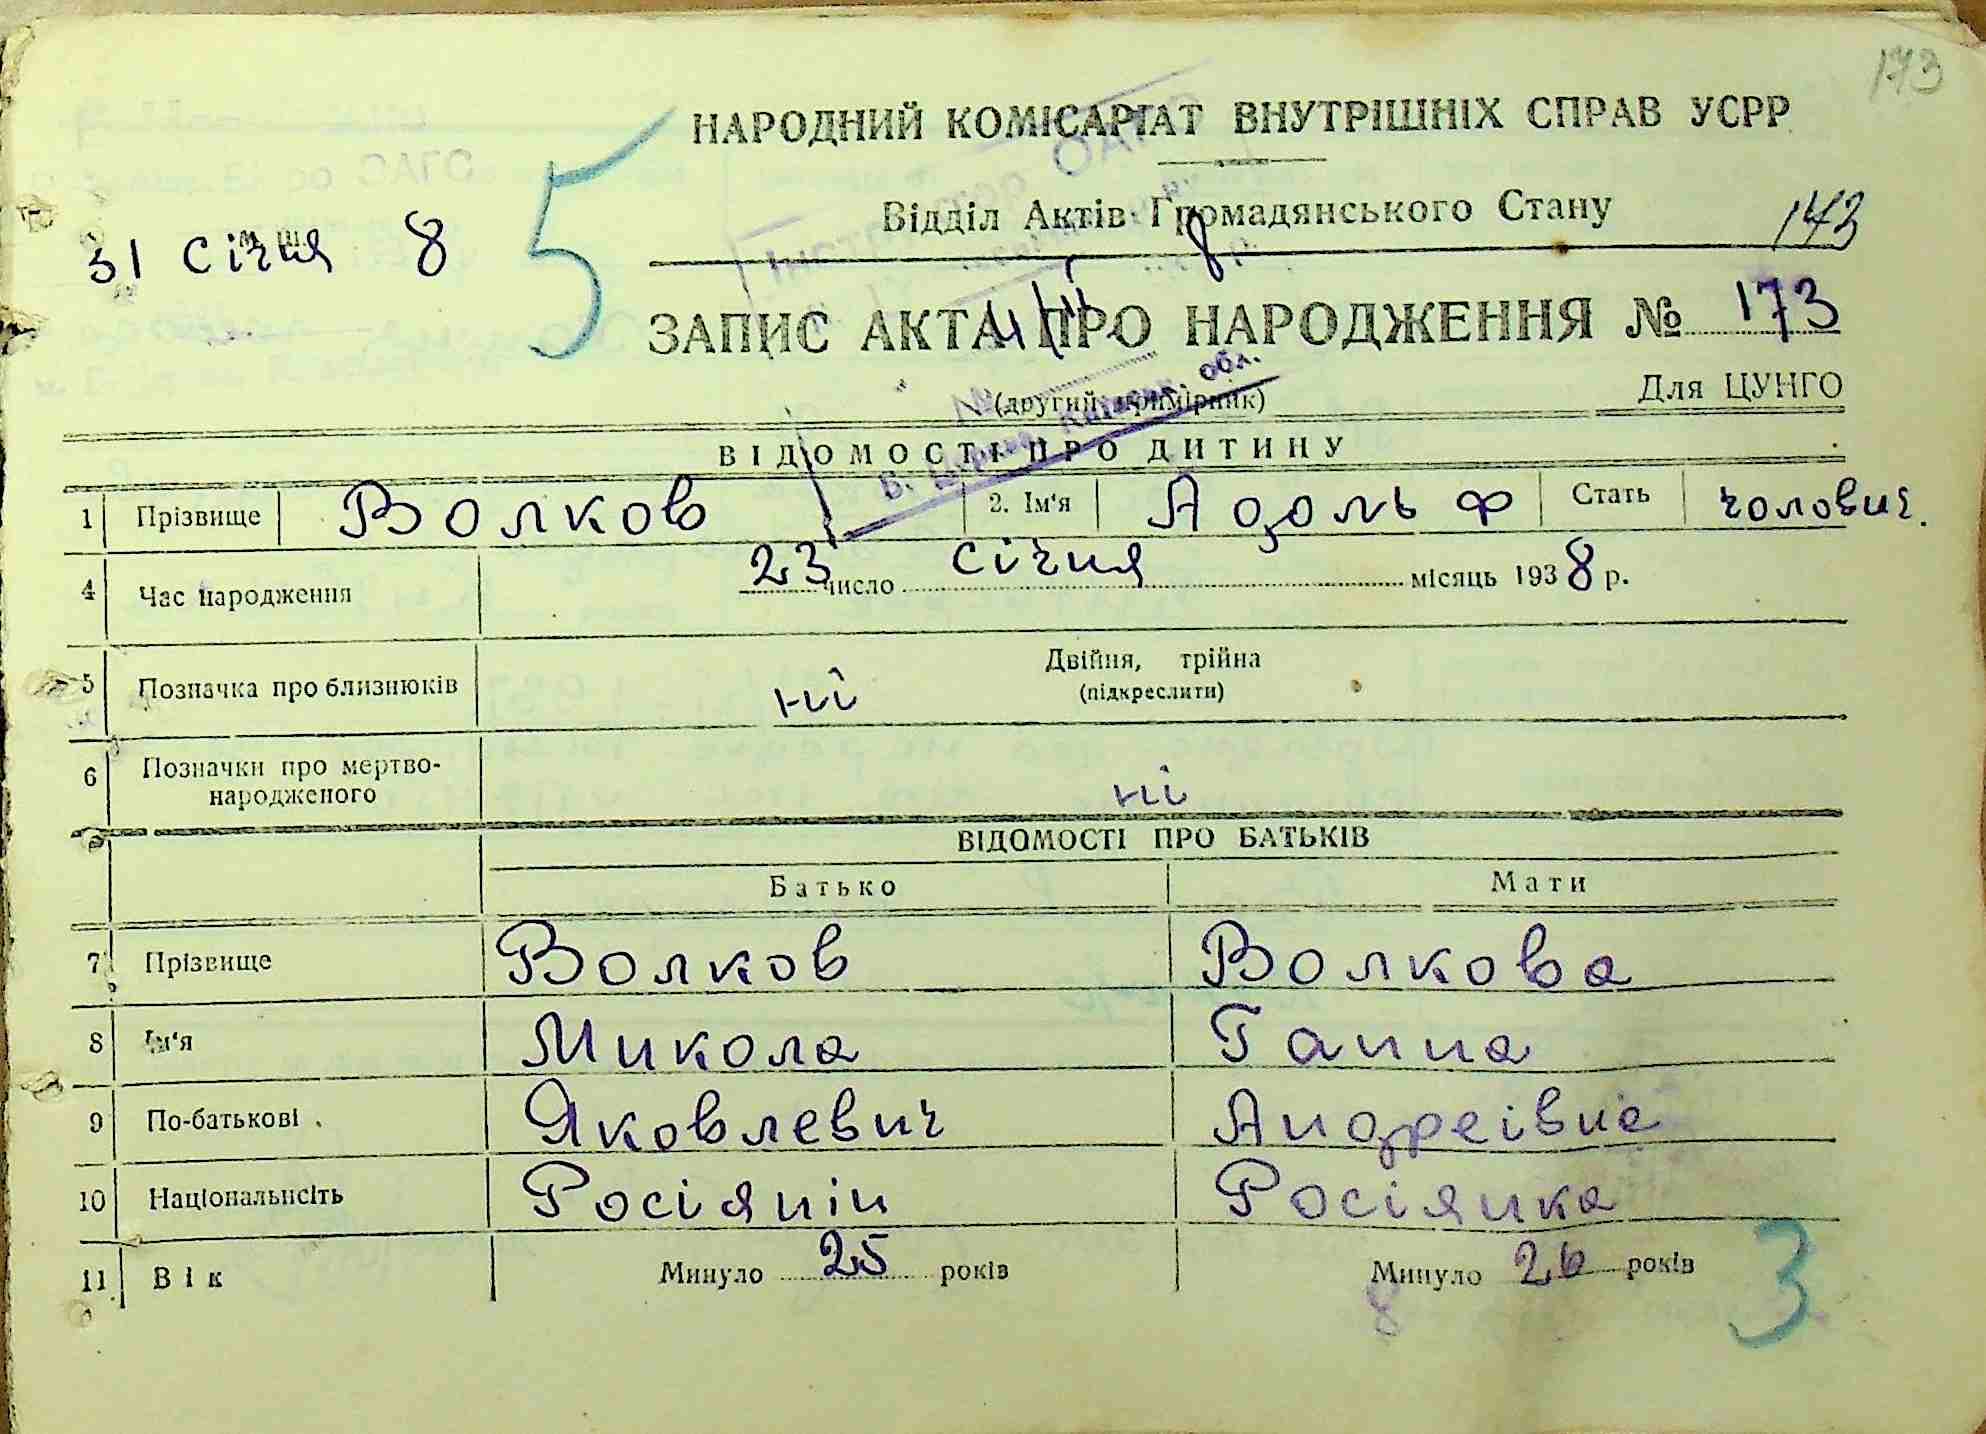 173
НАРОДНИЙ КОМІСАРІАТ ВНУТРІШНІХ СПРАВ УСРР
Відділ Актів Громадянського Стану
143
31 січня 8
5
ЗАПИС АКТА ПРО НАРОДЖЕННЯ № 173
(другий примірник)
Для ЦУНГО
ВІДОМОСТІ ПРО ДИТИНУ
1 Прізвище Волков 2. Ім'я Адольф Стать чолович.
4 Час народження 23 число січня місяць 1938 р.
5 Позначка про близнюків ні Двійня, трійна
(підкреслити)
6 Позначки про мертво-
народженого ні
ВІДОМОСТІ ПРО БАТЬКІВ
Батько Мати
7 Прізвище Волков Волкова
8 Ім'я Микола Ганна
9 По-батькові Яковлевич Андреівна
10 Національність Росіянін Росіянка
11 Вік Минуло 25 років Минуло 26 років
8
3